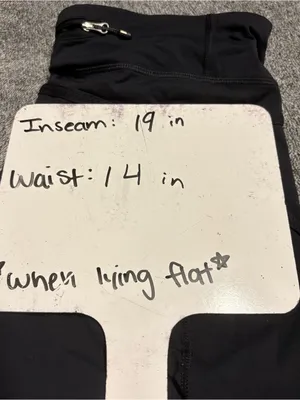 Inseam: 19 in
Waist: 14 in
*when lying flat*